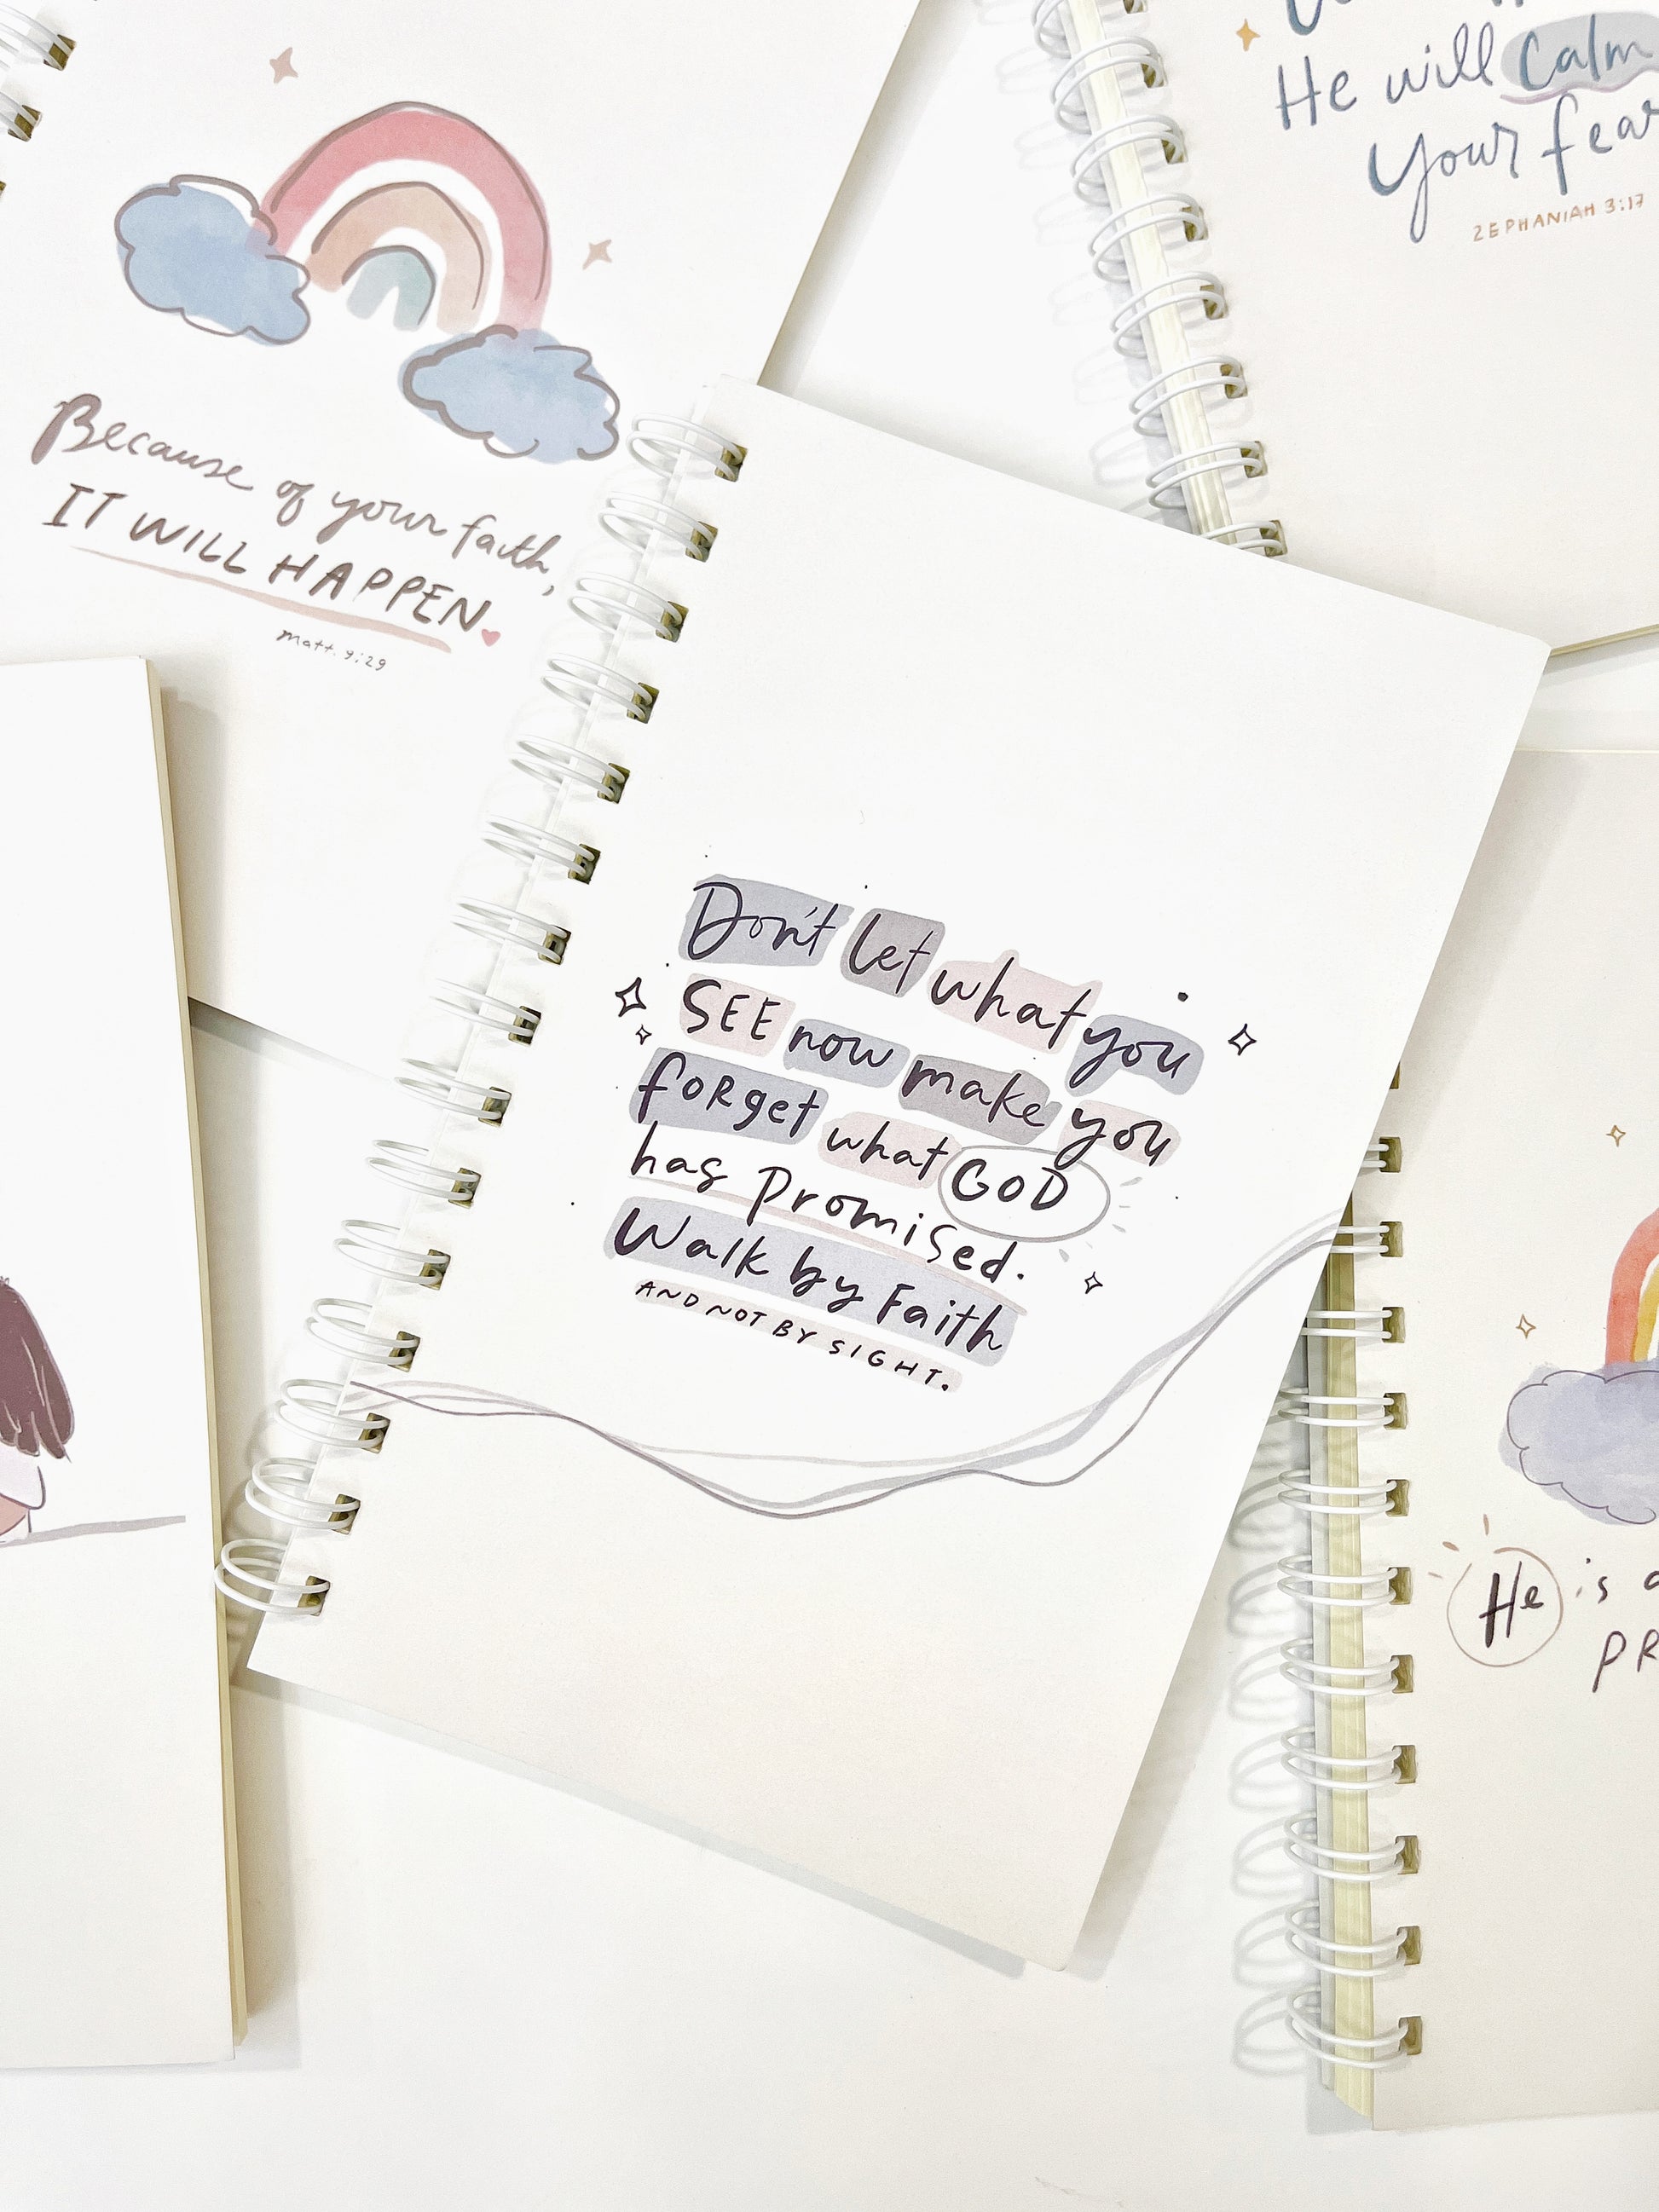 He will calm
your fear
ZEPHANIAH 3:17
Because of your faith,
IT WILL HAPPEN.
Matt. 9:29
Don't let what you
SEE now make you
forget what GOD
has promised.
Walk by Faith
AND NOT BY SIGHT.
He is